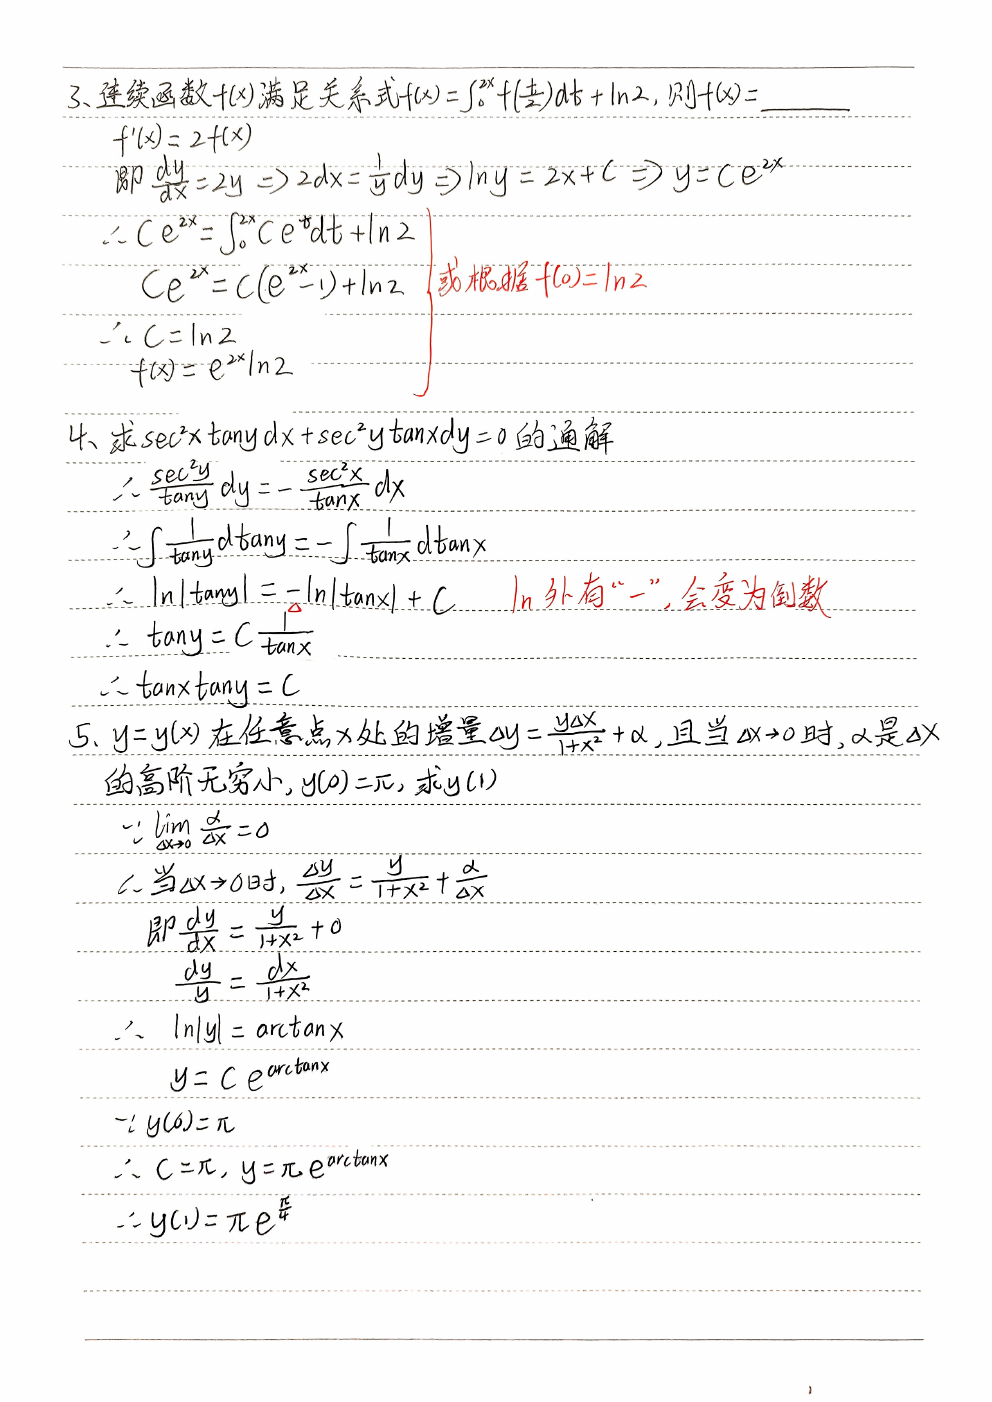 3、连续函数f(x)满足关系式f(x)=∫₀²ˣf(t/2)dt+ln2,则f(x)=______
f'(x)=2f(x)
即 dy/dx=2y ⇒ 2dx=1/y dy ⇒ lny=2x+C ⇒ y=Ce²ˣ
∴ Ce²ˣ=∫₀²ˣCeᵗdt+ln2
Ce²ˣ=C(e²ˣ-1)+ln2 或根据f(0)=ln2
∴ C=ln2
f(x)=e²ˣln2
4、求sec²xtanydx+sec²ytanxdy=0的通解
∴ sec²y/tany dy=-sec²x/tanx dx
∴ ∫1/tany dtany=-∫1/tanx dtanx
∴ ln|tany|=-ln|tanx|+C ln外有“-”,会变为倒数
∴ tany=C 1/tanx
∴ tanxtany=C
5、y=y(x)在任意点x处的增量Δy=yΔx/(1+x²)+α,且当Δx→0时,α是Δx
的高阶无穷小,y(0)=π,求y(1)
∵ lim Δx→0 α/Δx=0
∴ 当Δx→0时,Δy/Δx=y/(1+x²)+α/Δx
即 dy/dx=y/(1+x²)+0
dy/y=dx/(1+x²)
∴ ln|y|=arctanx
y=Ce^arctanx
∵ y(0)=π
∴ C=π,y=πe^arctanx
∴ y(1)=πe^(π/4)